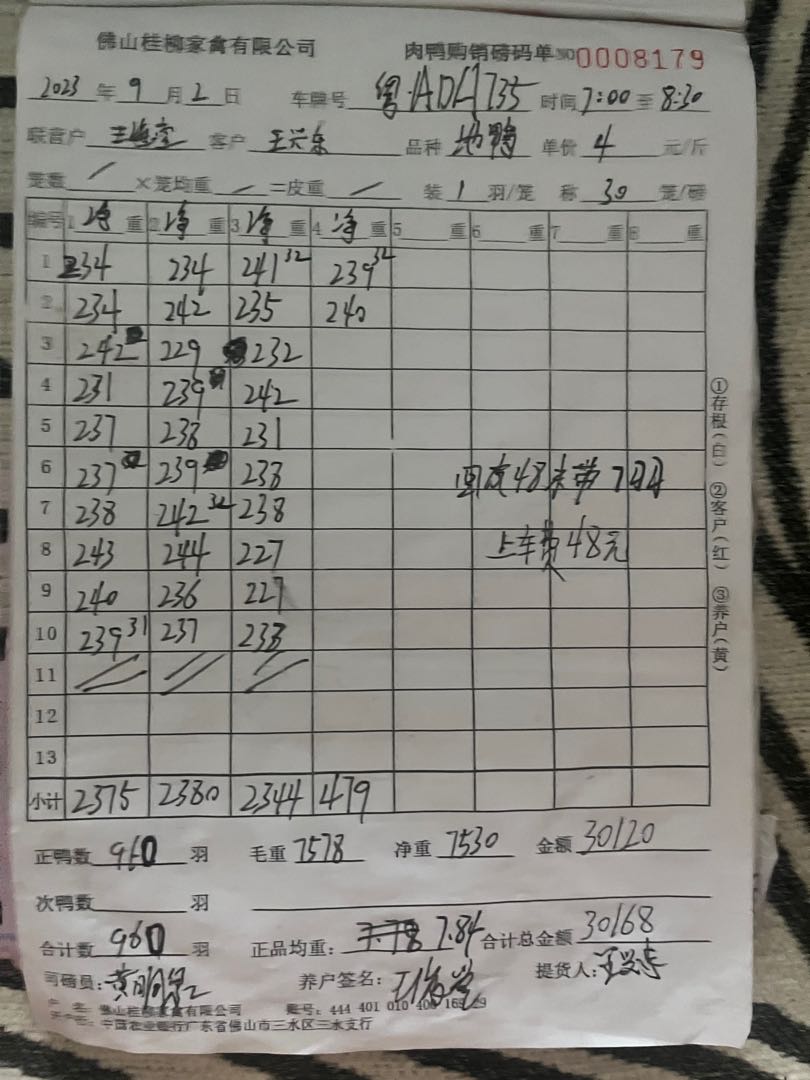 佛山桂柳家禽有限公司 肉鸭购销磅码单 NO 0008179
2023 年 9 月 2 日 车牌号 粤·ADH735 时间 7:00 至 8:30
联营户 客户 王兴东 品种 地鸭 单价 4 元/斤
笼数 / ×笼均重 / =皮重 / 装 1 羽/笼 称 30 笼/磅
编号 1 净 重 2 净 重 3 净 重 4 净 重 5 重 6 重 7 重 8 重
1 234 234 241 32 239 34
2 234 242 235 240
3 242 229 232
4 231 239 242
5 237 238 231
6 237 239 238
7 238 242 32 238
8 243 244 227
9 240 236 227
10 239 31 237 238
11
12
13
48 带
上车费48元
小计 2375 2380 2344 479
正鸭数 960 羽 毛重 7578 净重 7530 金额 30120
次鸭数 羽
合计数 960 羽 正品均重: 7.84 合计总金额 30168
司磅员: 黄明 养户签名: 提货人:
户 名: 佛山桂柳家禽有限公司 账号: 444 401 010 400
中国农业银行广东省佛山市三水区三水支行
①存根(白) ②客户(红) ③养户(黄)